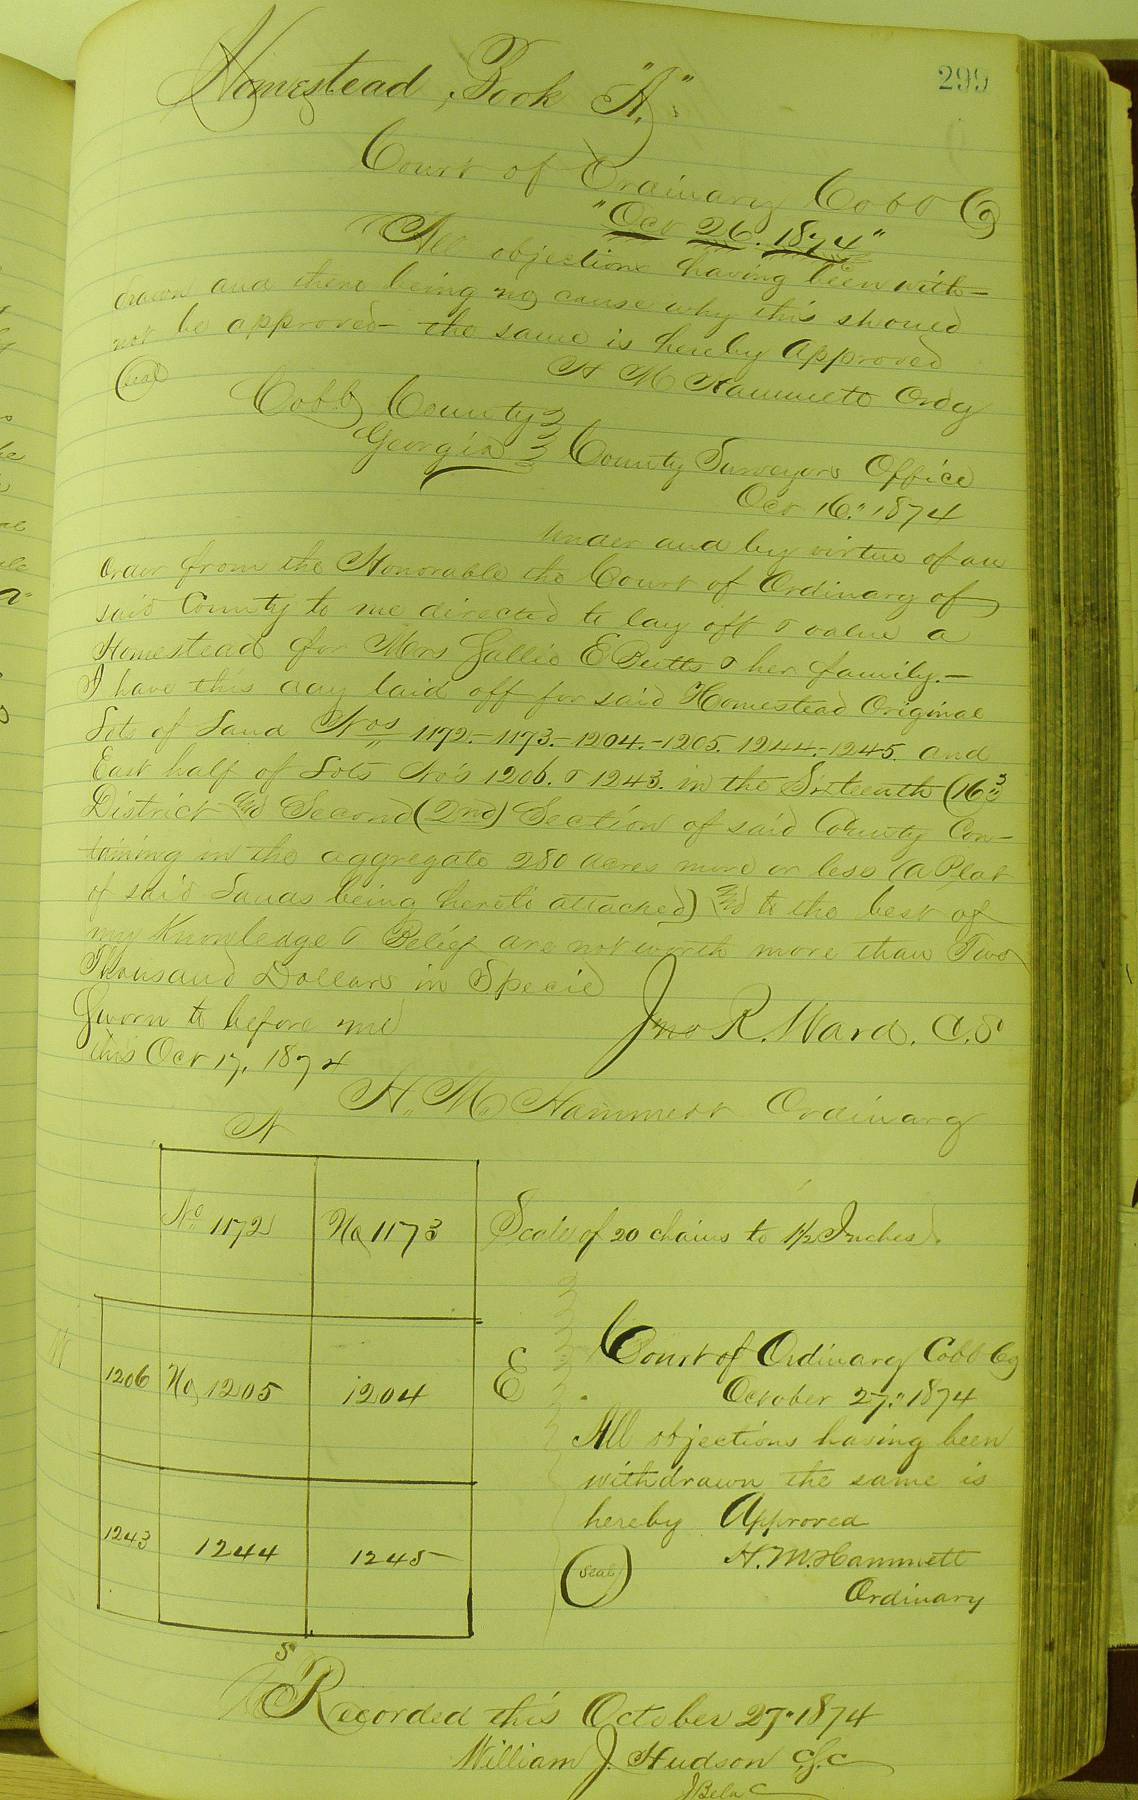 299
Homestead Book "A"
Court of Ordinary Cobb Co
"Oct 26. 1874"
All objections having been with-
drawn and there being no cause why this should
not be approved - the same is hereby Approved
Seal
H M Hammett Ordy
Cobb County
Georgia County Surveyors Office
Oct 16" 1874
Under and by virtue of an
order from the Honorable the Court of Ordinary of
said County to me directed to lay off & value a
Homestead for Mrs Sallie E Butts & her family.-
I have this day laid off for said Homestead Original
Lots of Land Nos 1172.- 1173.- 1204.- 1205. 1244.- 1245. and
East half of Lots No's 1206. & 1243. in the Sixteenth (16
District and Second (2nd) Section of said County Con-
taining in the aggregate 280 acres more or less (a Plat
of said Lands being hereto attached) and to the best of
my Knowledge & Belief are not worth more than Two
Thousand Dollars in Specie
Sworn to before me
this Oct 17, 1874
Jno R. Ward. C.S
H. M. Hammett Ordinary
N
No 1172
No 1173
Scale of 20 chains to 1½ Inches.
W
1206
No 1205
1204
E
1243
1244
1245
S
Court of Ordinary Cobb Co
October 27" 1874
All objections having been
withdrawn the same is
hereby Approved
Seal
H. M. Hammett
Ordinary
Recorded this October 27" 1874
William J. Hudson